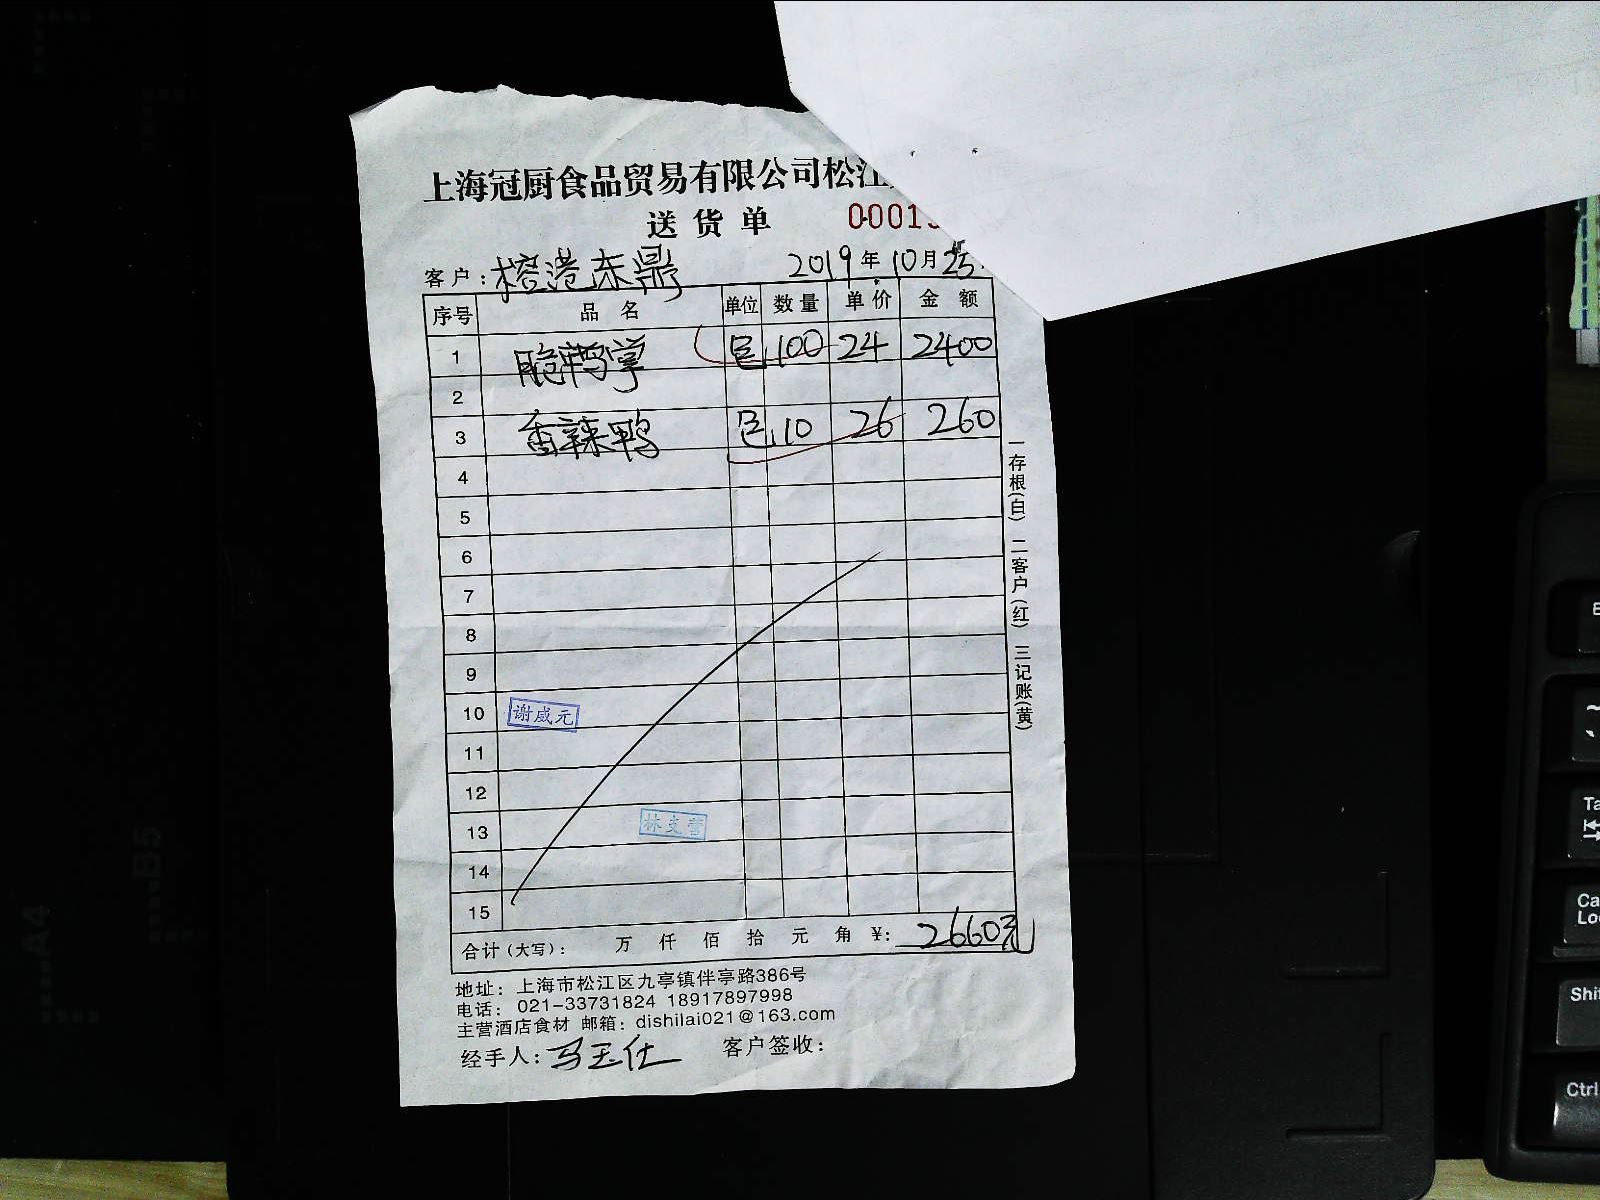 上海冠厨食品贸易有限公司松江
送货单 00015
客户：榕港东鼎 2019年10月25
序号 品名 单位 数量 单价 金额
1 脆鸭掌 包 100 24 2400
2
3 香辣鸭 包 10 26 260
4
5
6
7
8
9
10 谢咸元
11
12
13 林支营
14
15
合计(大写)： 万 仟 佰 拾 元 角 ¥: 2660元
地址：上海市松江区九亭镇伴亭路386号
电话：021-33731824 18917897998
主营酒店食材 邮箱：dishilai021@163.com
经手人：马玉仕 客户签收：
一存根(白) 二客户(红) 三记账(黄)
B5
A4
Ta
Ca
Lo
Shif
Ctrl